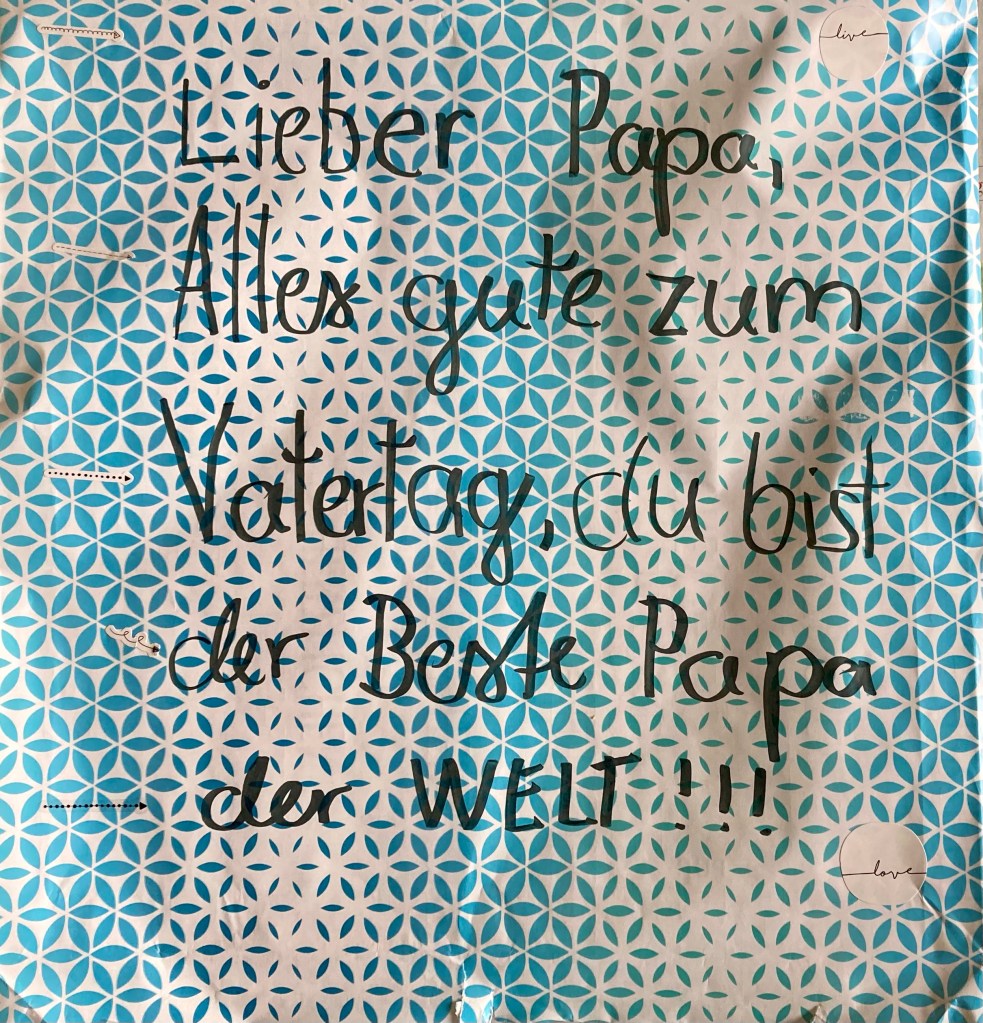 live
Lieber Papa,
Alles gute zum
Vatertag, du bist
der Beste Papa
der WELT !!!
love